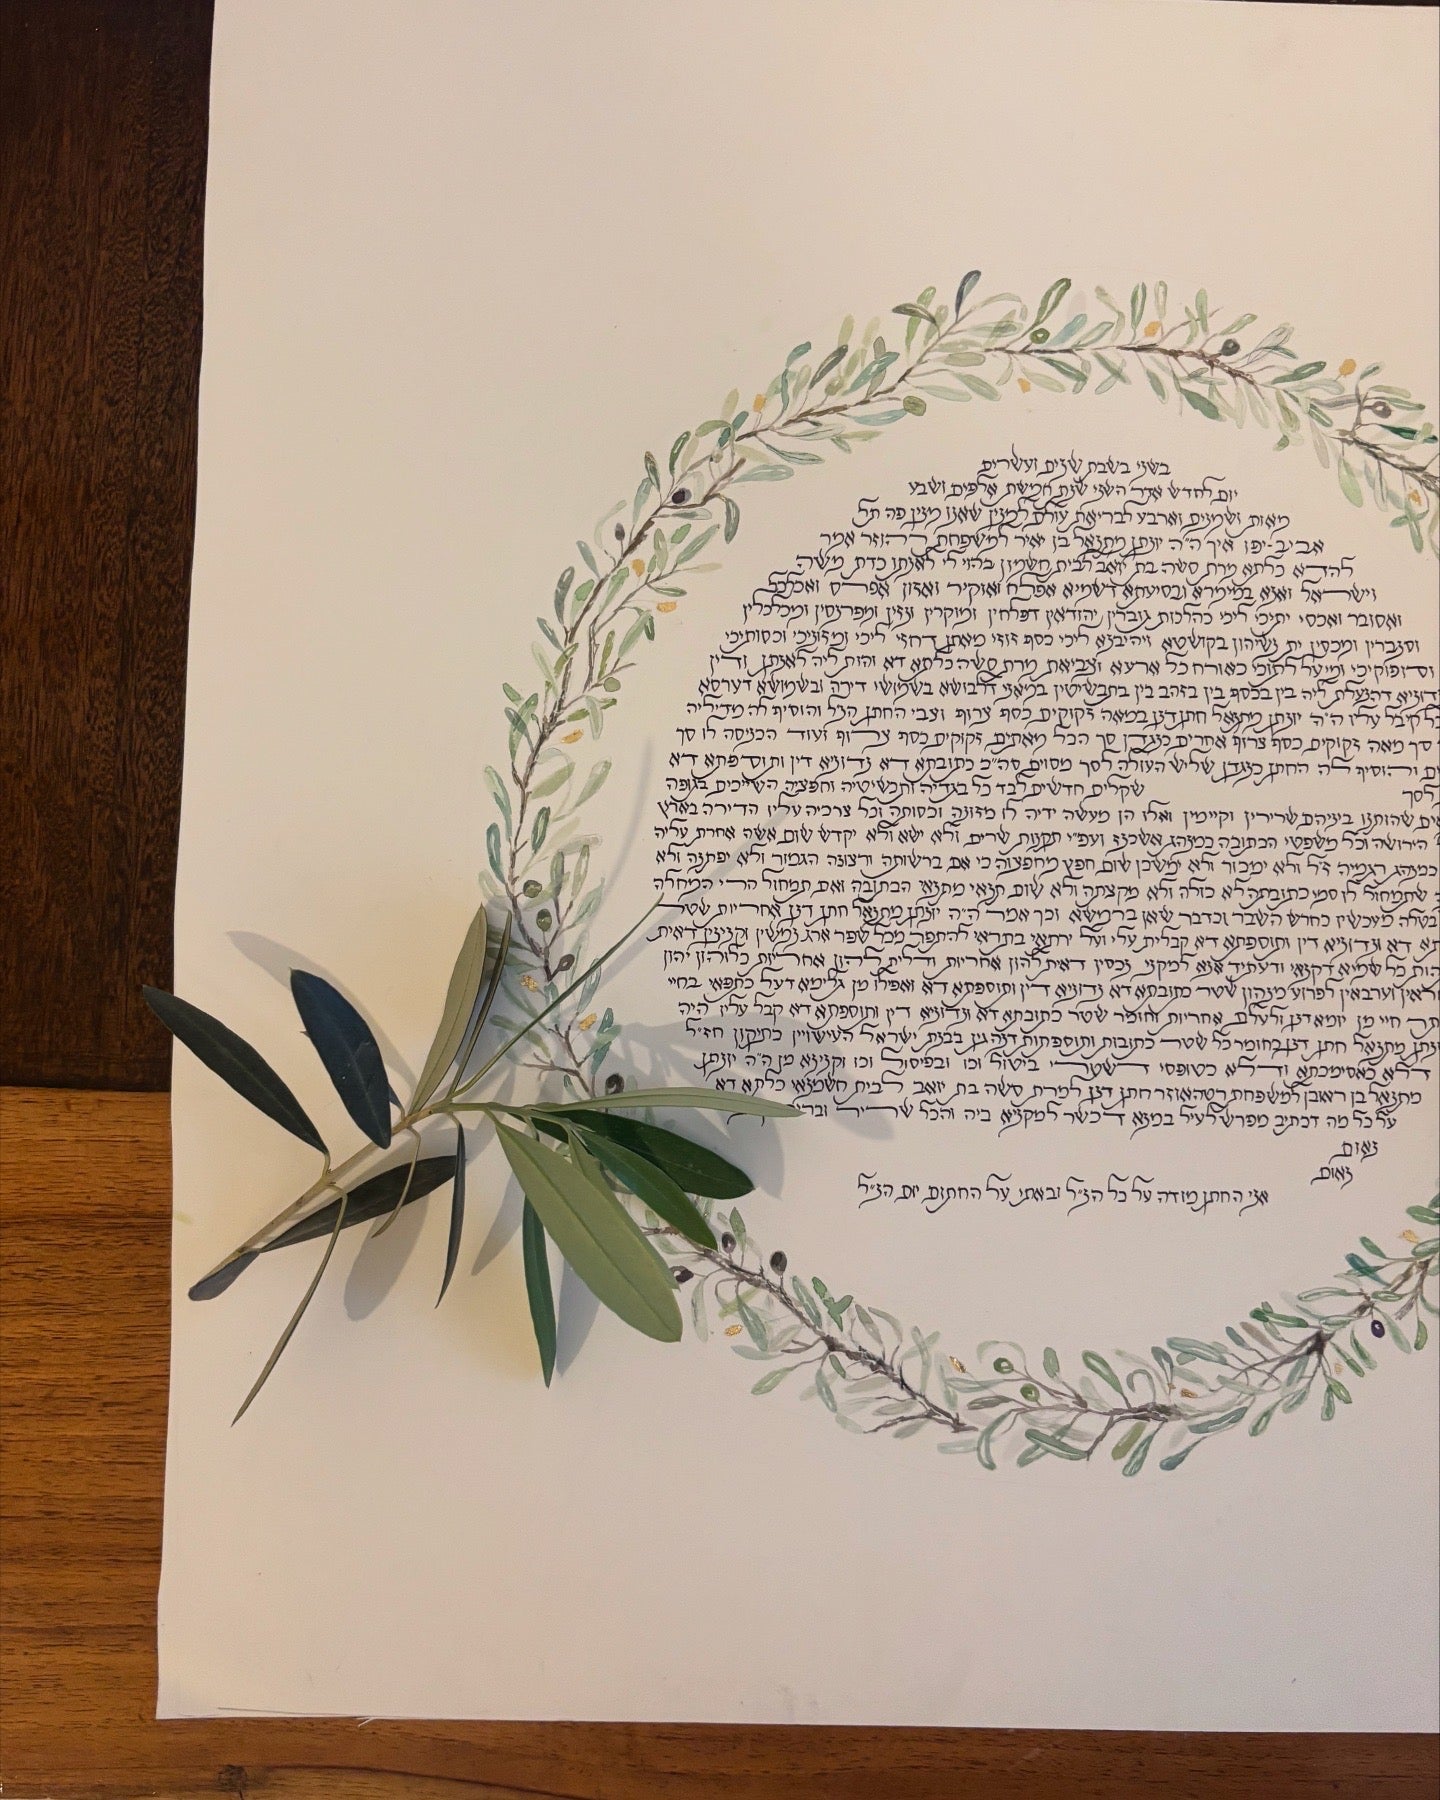 בשני בשבת שנים ועשרים
יום לחדש אדר השני שנת חמשת אלפים ושבע
מאות ושמנים וארבע לבריאת עולם למנין שאנו מנין פה תל
אביב-יפו איך ה"ה יונתן מתנאל בן יאיר למשפחת אמר
להדא כלתא מרת ששה בת יואב לבית חשמונאי בהוי לי לאנתו כדת משה
וישראל ואנא במימרא ובסיעתא דשמיא אפלח ואוקיר ואיזון אפרנס ואכלכל
ואסובר ואכסי יתיכי ליכי כהלכות גוברין יהודאין דפלחין ומוקרין וזנין ומפרנסין ומכלכלין
וסוברין ומכסין ית נשיהון בקושטא ויהיבנא ליכי כסף זוזי מאתן דחזי ליכי ומזוניכי וכסותיכי
וסיפוקיכי ומיעל לותיכי כאורח כל ארעא וצביאת מרת ששה כלתא דא והות ליה לאנתו ודין
נדוניא דהנעלת ליה בין בכסף בין בזהב בין בתכשיטין במאני דלבושא בשמושי דירה ובשמושא דערסא
הכל קיבל עליו ה"ה יונתן מתנאל חתן דנן במאה זקוקים כסף צרוף וצבי החתן הנ"ל והוסיף לה מדיליה
סך מאה זקוקים כסף צרוף אחרים כנגדן סך הכל מאתים זקוקים כסף צרוף ועוד הכניסה לו סך
והוסיף לה החתן כנגדן שליש העולה לסך מסוים סה"כ כתובתא דא נדוניא דין ותוספתא דא
לסך שקלים חדשים לבד כל בגדיה ותכשיטיה וחפציה השייכים בגופה
שהותנו ביניהם שרירין וקיימין ואלו הן מעשה ידיה לו מזונה וכסותה וכל צרכיה עליו הדירה בארץ
הירושה וכל משפטי הכתובה כמנהג אשכנז ועפ"י תקנות שו"ם ולא ישא ולא יקדש שום אשה אחרת עליה
כמנהג ולא ימכור ולא ימשכן שום חפץ מחפציה כי אם ברשותה ורצונה הגמור ולא יפתנה ולא
שתמחול לו סמי כתובתה לא כולה ולא מקצתה ולא שום תנאי מתנאי הכתובה ואם תמחול הרי המחלה
בטלה מעכשיו כחרש השבר וכדבר שאין בו ממשא וכך אמר ה"ה יונתן מתנאל חתן דנן אחריות שטר
דא ונדוניא דין ותוספתא דא קבלית עלי ועל ירתאי בתראי להתפרע מכל שפר ארג נכסין וקנינין דאית
תחות כל שמיא דקנאי ודעתיד אנא למקני נכסין דאית להון אחריות ודלית להון אחריות כלהון יהון
אחראין וערבאין לפרוע מנהון שטר כתובתא דא נדוניא דין ותוספתא דא ואפילו מן גלימא דעל כתפאי בחיי
חיי מן יומא דנן ולעלם אחריות וחומר שטר כתובתא דא ונדוניא דין ותוספתא דא קבל עליו ה"ה
יונתן מתנאל חתן דנן כחומר כל שטרי כתובות ותוספתות דנהגין בבנת ישראל העישויין כתיקון חז"ל
דלא כאסימכתא ודלא כטופסי דשטרי בביטול וכו ובפיסול וכו וקנינא מן ה"ה יונתן
מתנאל בן למשפחת חתן דנן למרת ששה בת יואב לבית חשמונאי כלתא דא
על כל מה דכתיב ומפרש לעיל במנא דכשר למקניא ביה והכל שריר
נאום
נאום
אני החתן מודה על כל הנ"ל ובאתי על החתום יום הנ"ל